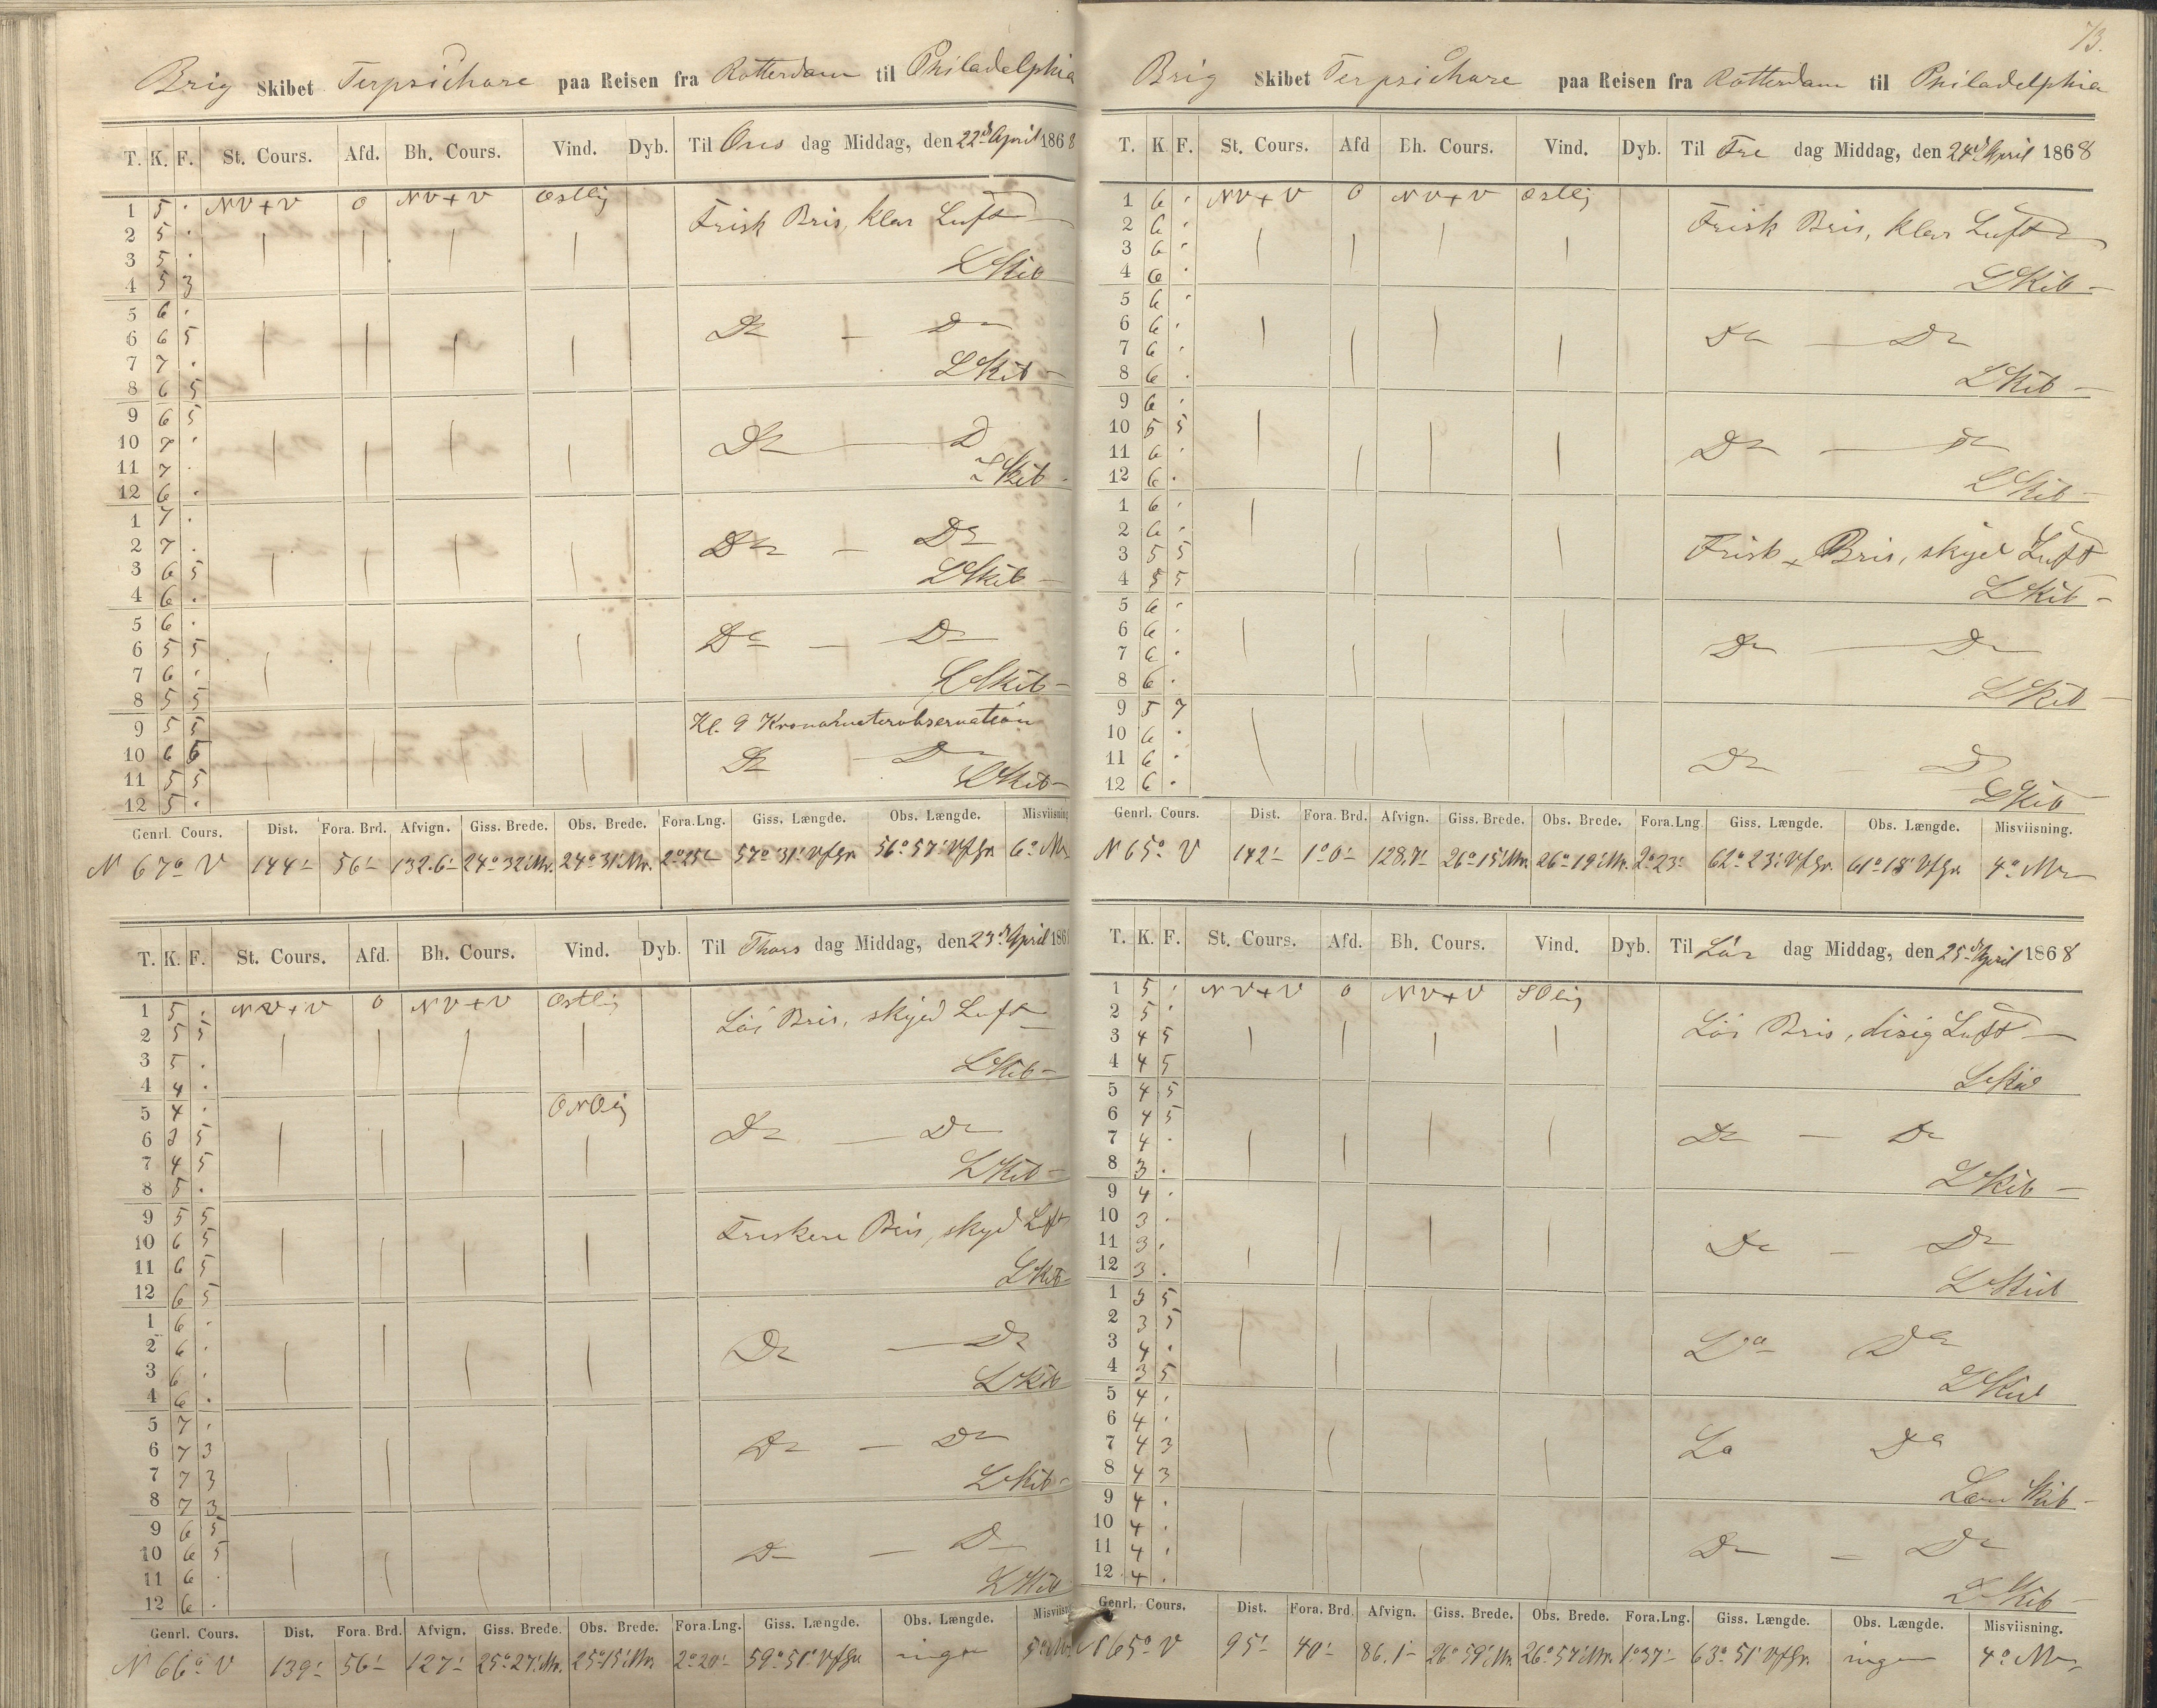 Brig Skibet Terpsichore paa Reisen fra Rotterdam til Philadelphia
T. K. F. St. Cours. Afd. Bh. Cours. Vind. Dyb. Til Ons dag Middag, den 22d April 1868
1 5 . NV+V 0 NV+V Østlig
2 5 . Frisk Bris, klar Luft
3 5 .
4 5 3 LSkib
5 6 .
6 6 5 Do — Do
7 7 .
8 6 5 LSkib
9 6 5
10 7 . Do — D
11 7 . LSkib
12 6 .
1 7 .
2 7 . Do — Do
3 6 5 LSkib
4 6 .
5 6 .
6 5 5 Do — Do
7 6 .
8 5 5 LSkib
9 5 5 Kl. 9 Kronometerobservation
10 6 5 Do — Do
11 5 5 LSkib
12 5 .
Genrl. Cours. Dist. Fora. Brd. Afvign. Giss. Brede. Obs. Brede. Fora.Lng. Giss. Længde. Obs. Længde. Misviisning
N 67° V 144' 56' 132.6' 24° 32' Nr. 24° 31' Nr. 2° 25' 57° 31' VfGr. 56° 57' VfGr. 6° Nv
T. K. F. St. Cours. Afd. Bh. Cours. Vind. Dyb. Til Thors dag Middag, den 23d April 186
1 5 . NV+V 0 NV+V Østlig
2 5 5 Löi Bris, skyed Luft
3 5 .
4 4 . LSkib
5 4 . ONOlig
6 3 5 Do — Do
7 4 5
8 5 . LSkib
9 5 5
10 6 5 Friskere Bris, skyed Luft
11 6 5
12 6 5 LSkib
1 6 .
2 6 . Do — Do
3 6 .
4 6 . LSkib
5 7 .
6 7 3 Do — Do
7 7 3
8 7 3 LSkib
9 6 5
10 6 5 Do — Do
11 6 .
12 6 . LSkib
Genrl. Cours. Dist. Fora. Brd. Afvign. Giss. Brede. Obs. Brede. Fora.Lng. Giss. Længde. Obs. Længde. Misviisn
N 66° V 139' 56' 127' 25° 27' Nr. 25° 15' Nr. 2° 20' 59° 51' VfGr. ingen 5° Nv
73.
Brig Skibet Terpsichore paa Reisen fra Rotterdam til Philadelphia
T. K. F. St. Cours. Afd Bh. Cours. Vind. Dyb. Til Fre dag Middag, den 24d April 1868
1 6 . NV+V 0 NV+V Østlig
2 6 . Frisk Bris, klar Luft
3 6 .
4 6 . LSkib
5 6 .
6 6 . Do — Do
7 6 .
8 6 . LSkib
9 6 .
10 5 5 Do — Do
11 6 .
12 6 . LSkib
1 6 .
2 6 .
3 5 5 Frisk Bris, skyed Luft
4 5 5 LSkib
5 6 .
6 6 . Do — Do
7 6 .
8 6 . LSkib
9 5 7
10 6 .
11 6 . Do — D
12 6 . LSkib
Genrl. Cours. Dist. Fora. Brd. Afvign. Giss. Brede. Obs. Brede. Fora.Lng. Giss. Længde. Obs. Længde. Misviisning.
N 65° V 142' 1° 0' 128.7' 26° 15' Nr. 26° 19' Nr. 2° 23' 62° 23' VfGr. 61° 18' VfGr. 4° Nv
T. K. F. St. Cours. Afd. Bh. Cours. Vind. Dyb. Til Lör dag Middag, den 25d April 1868
1 5 . NV+V 0 NV+V SOlig
2 5 .
3 4 5 Löi Bris, disig Luft
4 4 5 LSkib
5 4 5
6 4 5
7 4 . Do — Do
8 3 . LSkib
9 4 .
10 3 .
11 3 . Do — Do
12 3 . LSkib
1 3 5
2 3 5
3 4 . Do Do
4 3 5 LSkib
5 4 .
6 4 .
7 4 3 Do Do
8 4 3 Læns Skib
9 4 .
10 4 .
11 4 . Do — Do
12 4 . LSkib
Genrl. Cours. Dist. Fora. Brd. Afvign. Giss. Brede. Obs. Brede. Fora.Lng. Giss. Længde. Obs. Længde. Misviisning.
N 65° V 95' 40' 86.1' 26° 59' Nr. 26° 57' Nr. 1° 37' 63° 51' VfGr. ingen 4° Nv